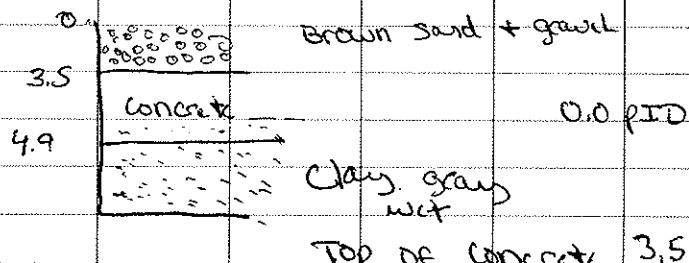 0.
Brown sand + gravel
3.5
concrete
0.0 PID
4.9
Clay. gray
wet
TOP OF Concrete 3.5